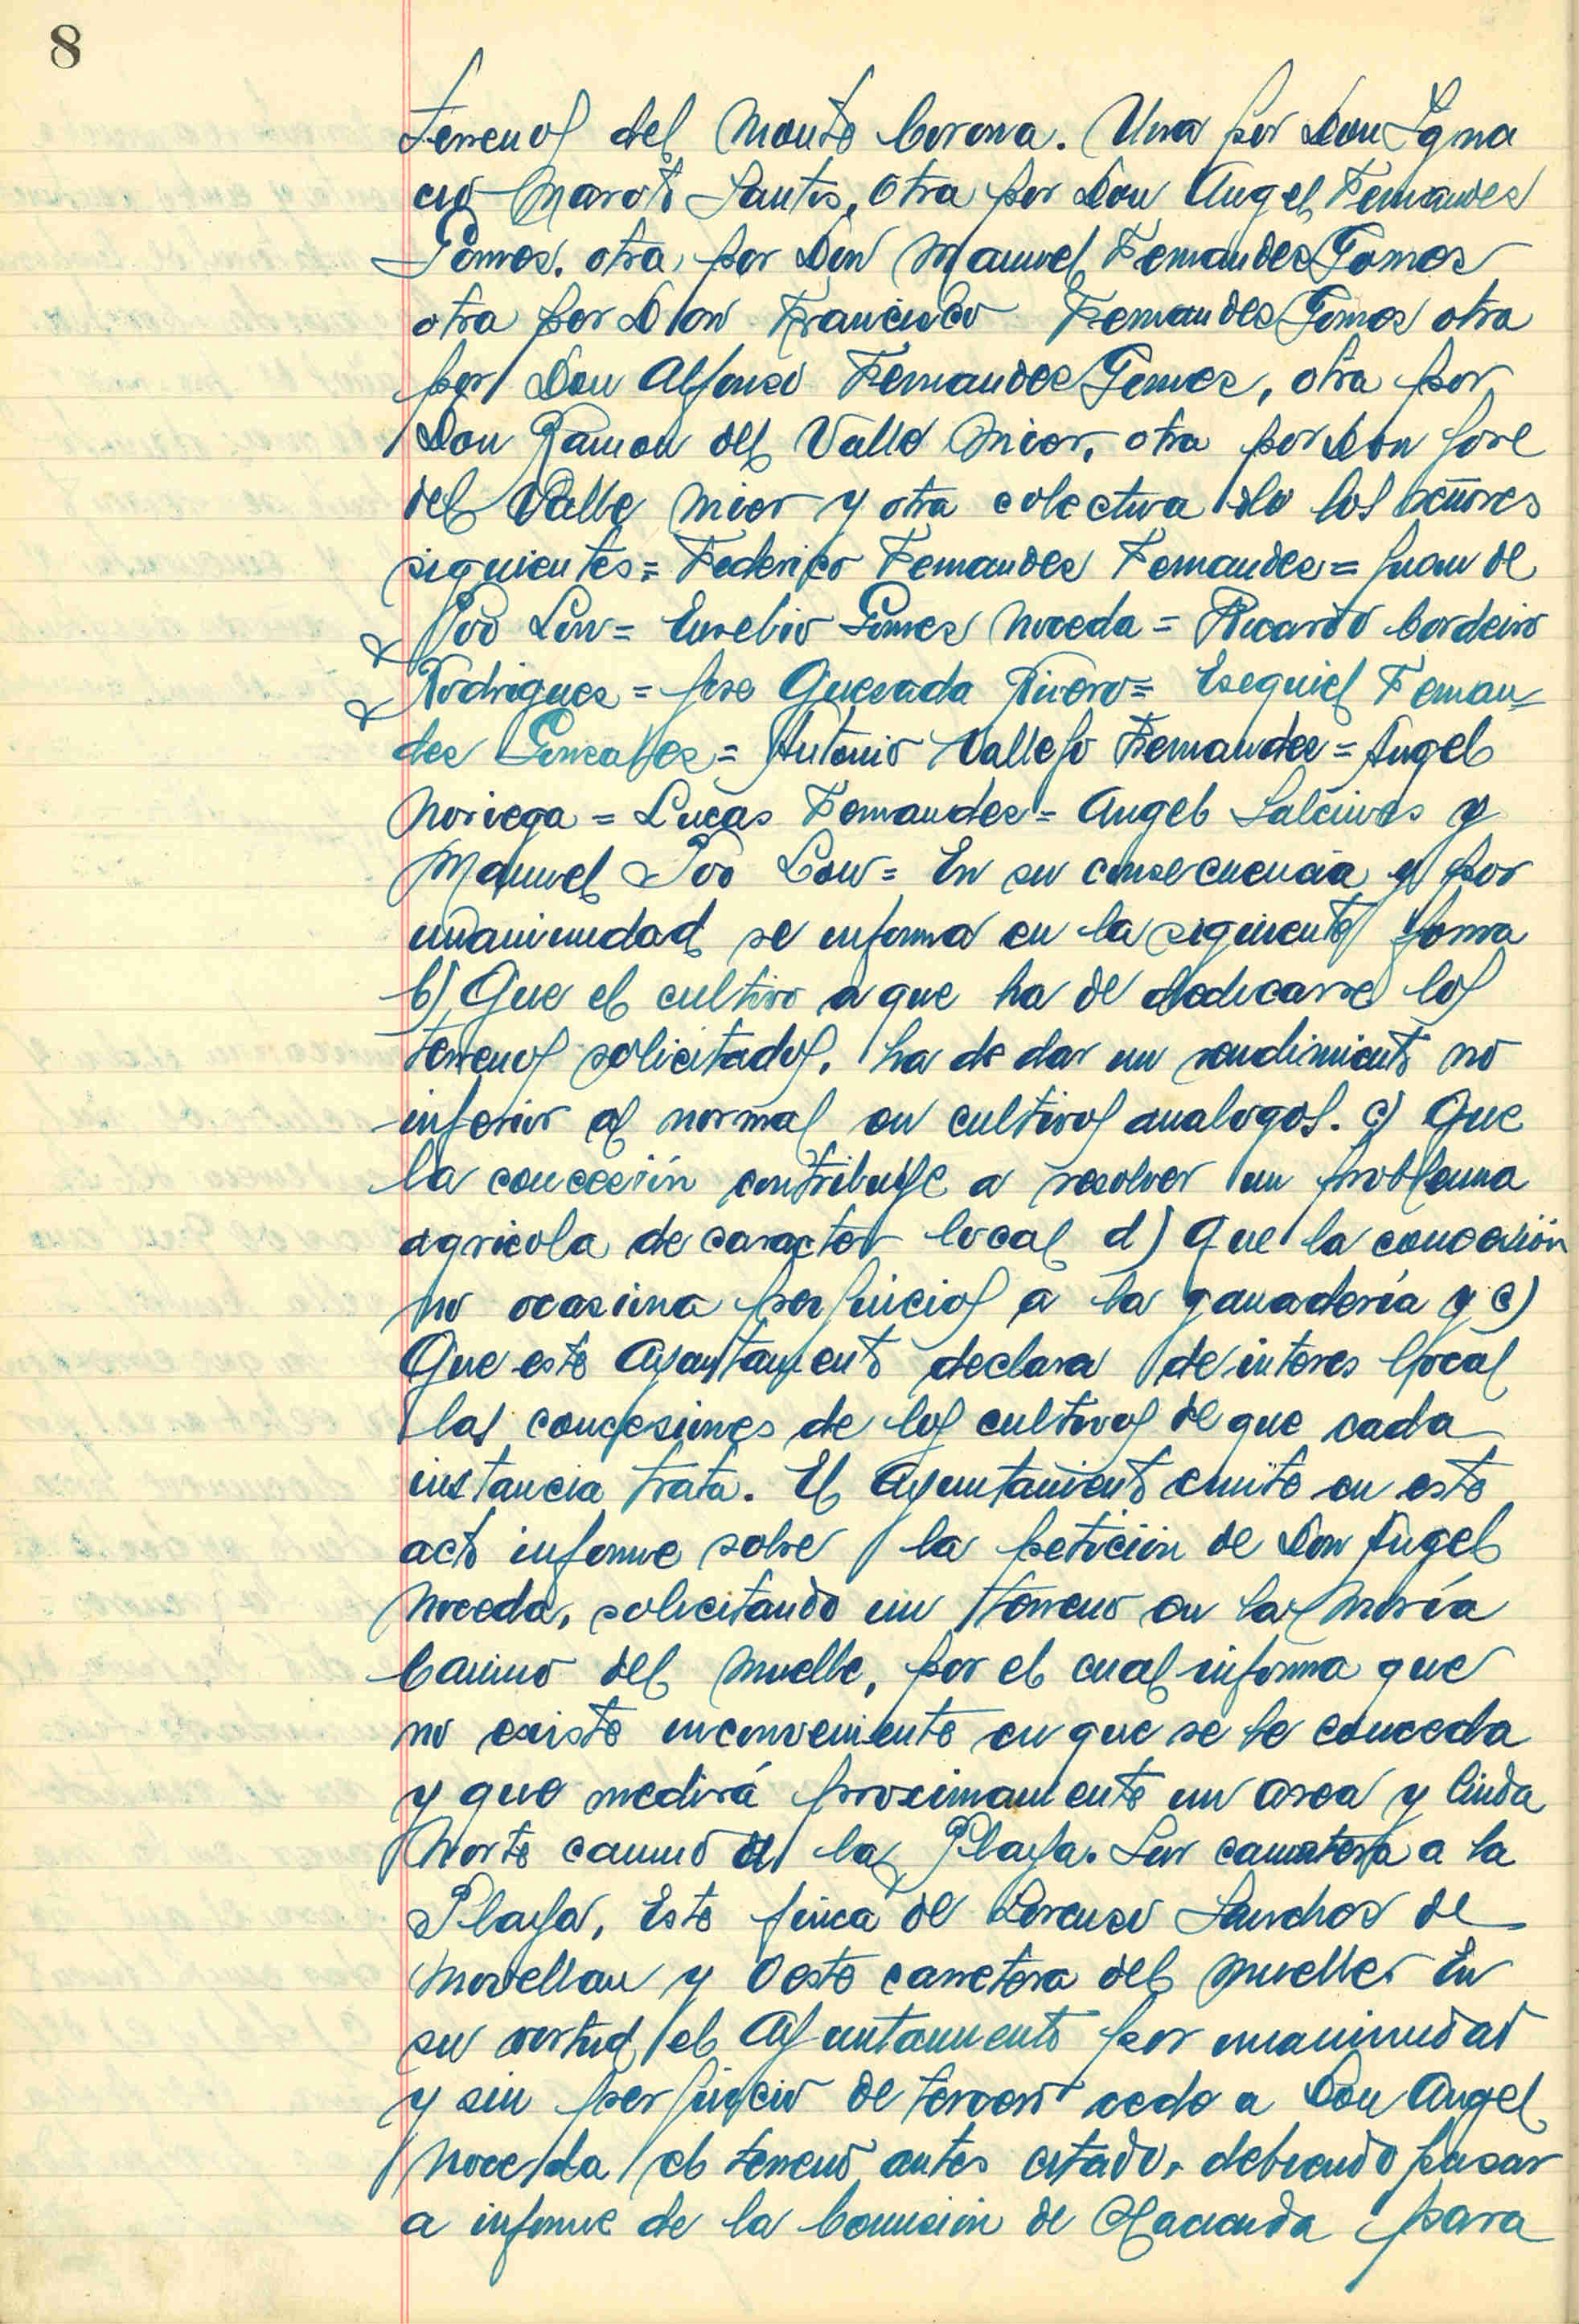 8
terrenos del Monte Corona. Una por Don Igna
cio Maroto Santos, otra por Don Angel Fernandez
Gomez. otra por Don Manuel Fernandez Gomez
otra por Don Francisco Fernandez Gomez otra
por Don Alfonso Fernandez Gomez, otra por
Don Ramon del Valle Mier, otra por Don Jose
del Valle Mier y otra colectiva de los señores
siguientes = Federico Fernandez Fernandez = Juan de
Poo = Eusebio Gomez Noceda = Ricardo Cordeiro
Rodriguez = Jose Quevada Rivero = Esequiel Fernan=
dez Gonzalez = Antonio Vallejo Fernandez = Angel
Noriega = Lucas Fernandez = Angel Salcines y
Manuel Poo = En su consecuencia y por
unanimidad se informa en la siguiente forma
b) Que el cultivo a que ha de dedicarse los
terrenos solicitados, ha de dar un rendimiento no
inferior al normal en cultivos analogos. c) Que
la concesión contribuye a resolver un problema
agricola de caracter local d) Que la concesión
no ocasiona perjuicios a la ganadería y e)
Que este Ayuntamiento declara de interes local
las concesiones de los cultivos de que cada
instancia trata. El Ayuntamiento emite en este
acto informe sobre la petición de Don Angel
Noceda, solicitando un terreno en la María
Camino del Muelle, por el cual informa que
no existe inconveniente en que se le conceda
y que medirá proximamente un area y linda
Norte camino de la Playa. Sur carretera a la
Playa, Este finca de Lorenzo Sanchez de
Movellan y Oeste carretera del Muelle. En
su virtud el Ayuntamiento por unanimidad
y sin perjuicio de tercero cede a Don Angel
Noceda el terreno antes citado, debiendo pasar
a informe de la Comisión de Hacienda para